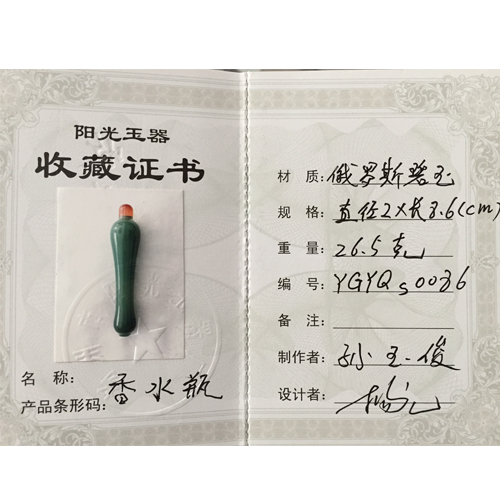 阳光玉器
收藏证书
名 称: 香水瓶
产品条形码:
材 质: 俄罗斯碧玉
规 格: 直径2×长8.6(cm)
重 量: 26.5克
编 号: YGYQs0036
备 注:
制作者: 孙玉俊
设计者: 杨